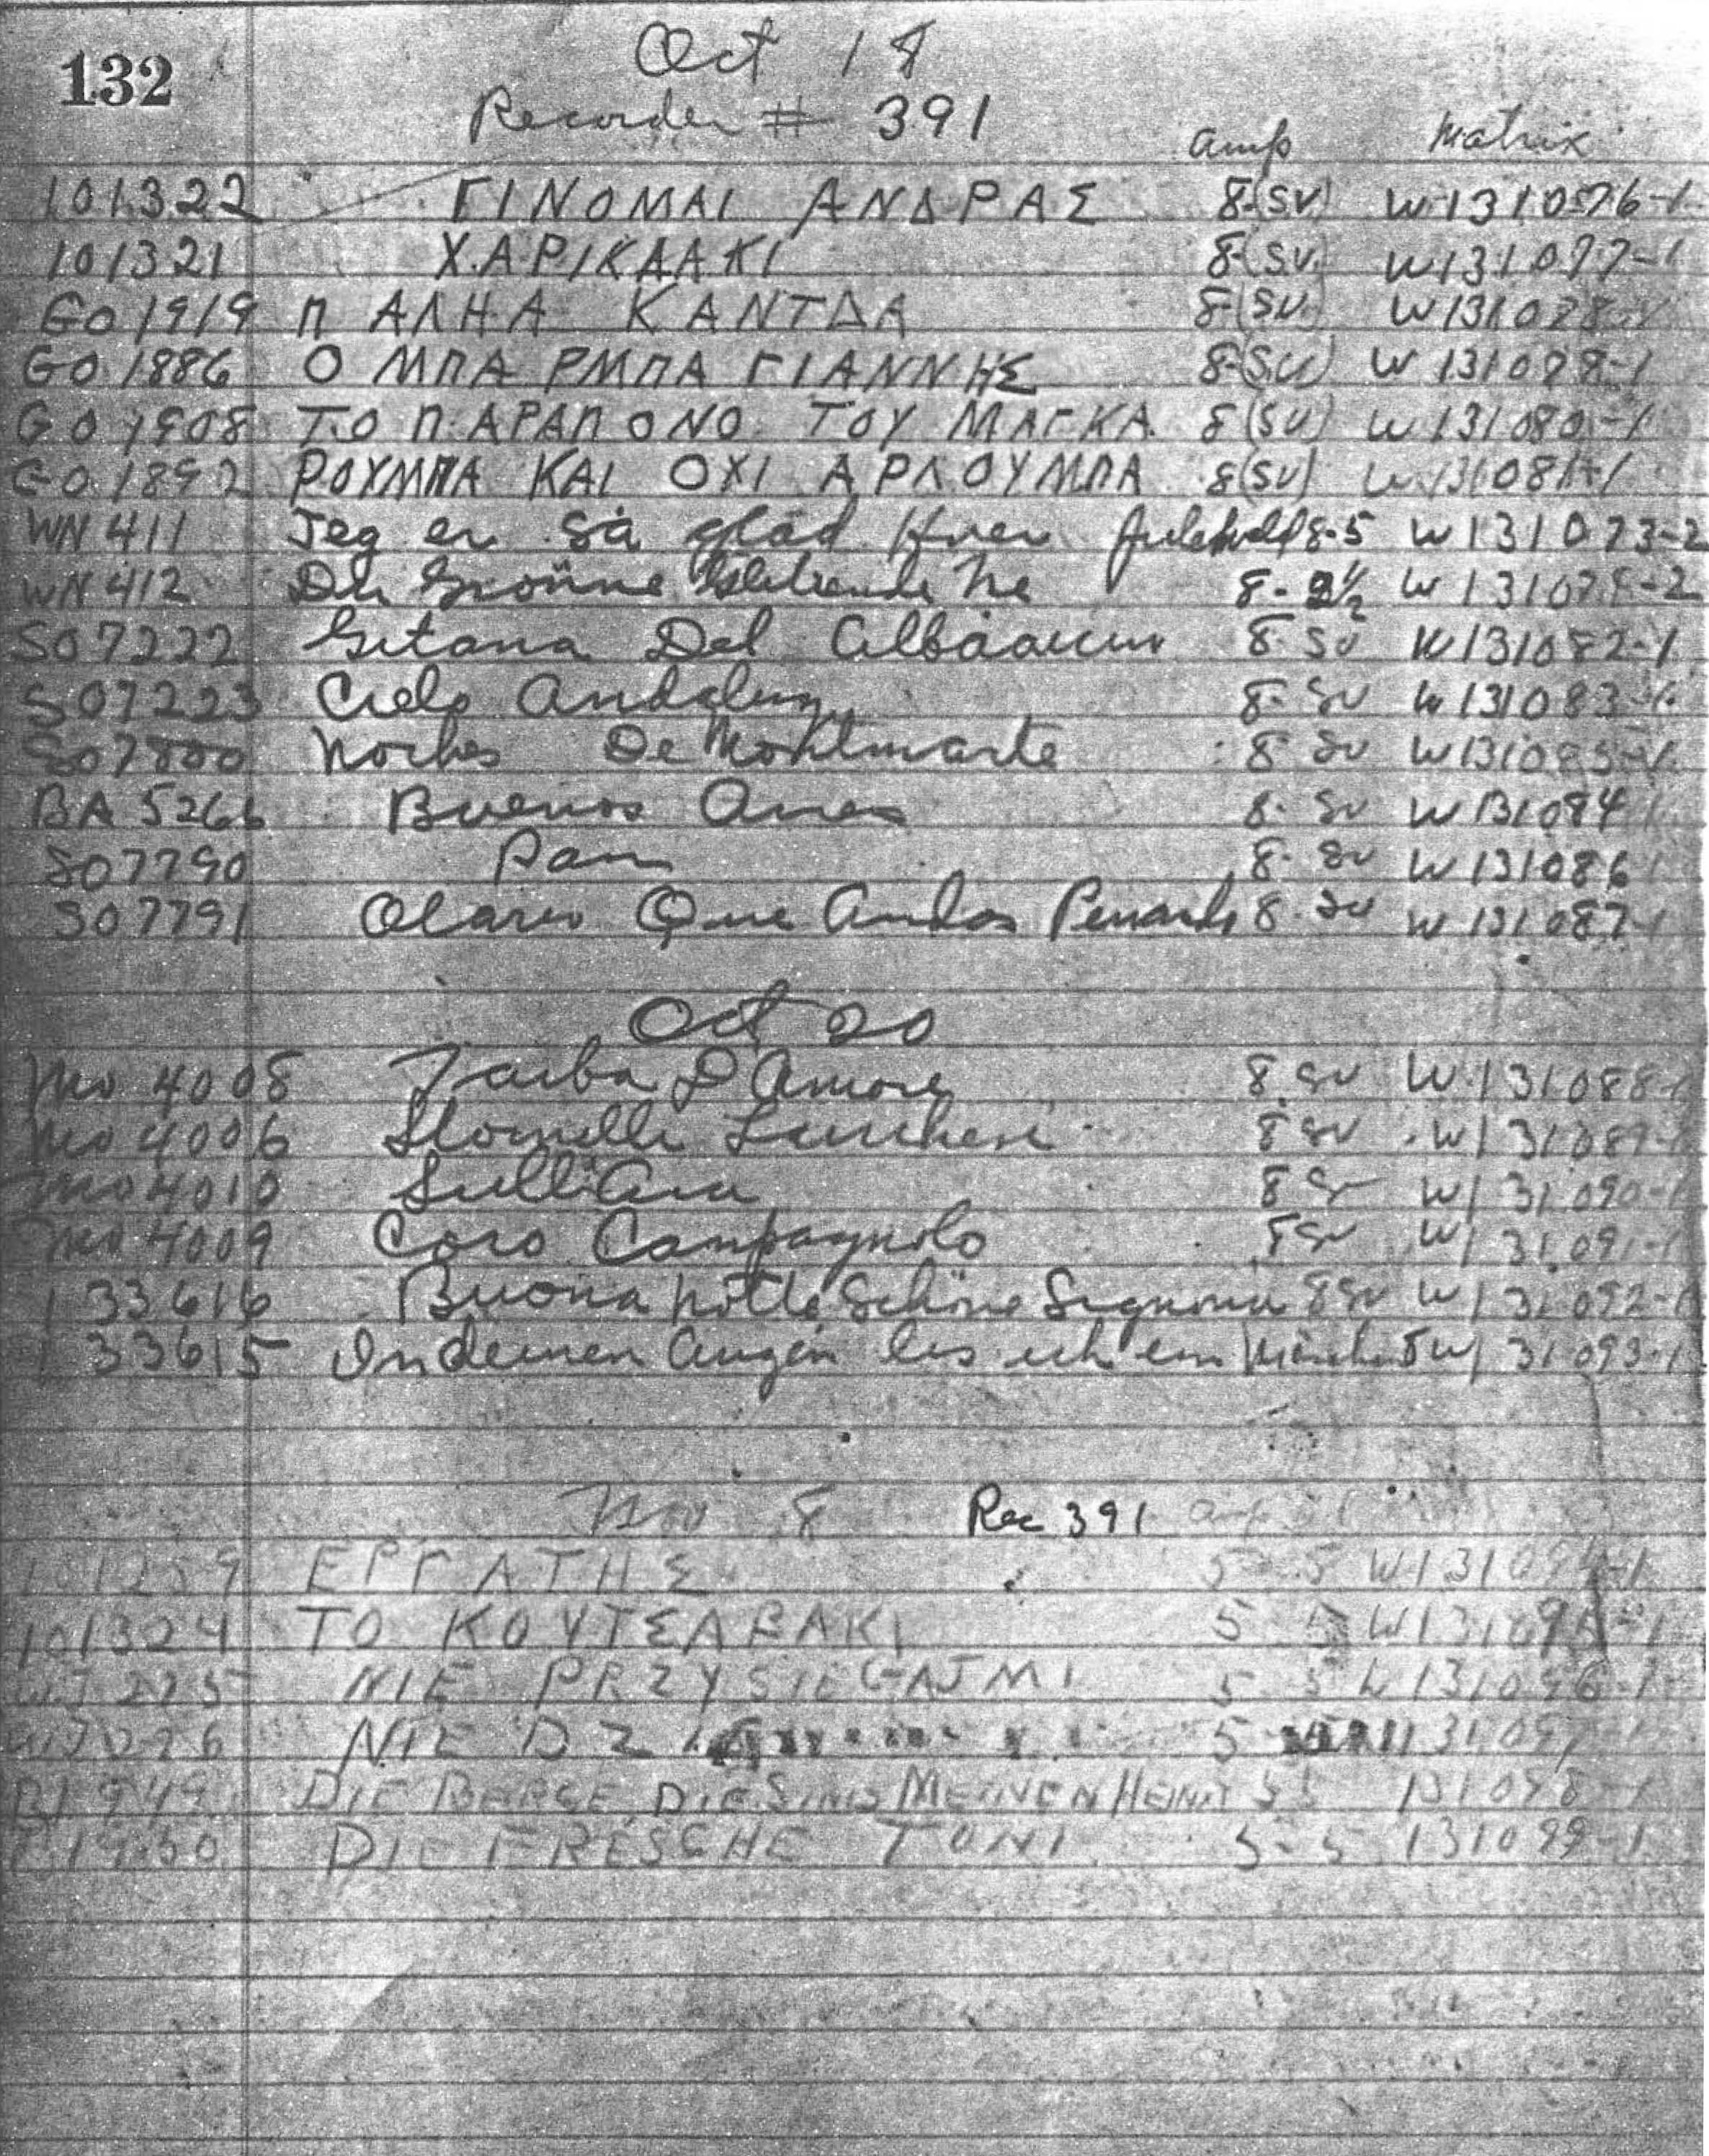 132
Oct 18
Recorder # 391
amp Matrix
101322 ΓΙΝΟΜΑΙ ΑΝΔΡΑΣ 8-(SV) W131076-1
101321 ΧΑΡΙΚΛΑΚΙ 8-(SV) W131077-1
GO 1919 ΠΑΛΗΑ ΚΑΝΤΔΑ 8-(SV)
GO 1886 Ο ΜΠΑ ΡΜΠΑ ΓΙΑΝΝΗΣ 8-(SV) W131079-1
GO 1908 ΤΟ ΠΑΡΑΠΟΝΟ ΤΟΥ ΜΑΓΚΑ 8(SV) W131080-1
GO 1892 ΡΟΥΜΠΑ ΚΑΙ ΟΧΙ ΑΡΛΟΥΜΠΑ 8(SV) W131081-1
WN 411 Jeg er så glad Hver 8-5 W131073-2
WN 412 8-
SO7222 Gitana Del 8-SV W131082-1
SO7223 Cielo 8-SV W131083-1
SO7800 Noches De Montmarte 8 SV W131085-1
BA 5266 Buenos Aires 8-SV W131084
SO7790 8-SV W131086
SO7791 Que Andas 8-SV W131087-1
Oct 20
MO 4008 D'Amore 8 SV W131088-1
MO 4006 8 SV W131089-1
MO 4010 Sull'Aia 8 SV W131090-1
MO 4009 Coro Campagnolo 8 SV W131091-1
133616 Buona Notte Schöne Signorina 8 SV W131092-1
133615 In deinen Augen les ich ein W131093-1
Nov 8 Rec 391 amp
ΕΡΓΑΤΗΣ 5-5 W131094-1
101324 ΤΟ ΚΟΥΤΣΑΒΑΚΙ 5 W131095-1
NIE PRZYSIEGAJ MI 5-5 W131096-1
NIE 5 131097
DIE BERGE DIE SIND MEINEN HEIMT 5 5 131098-1
DIE FRESCHE TONI 5-5 131099-1